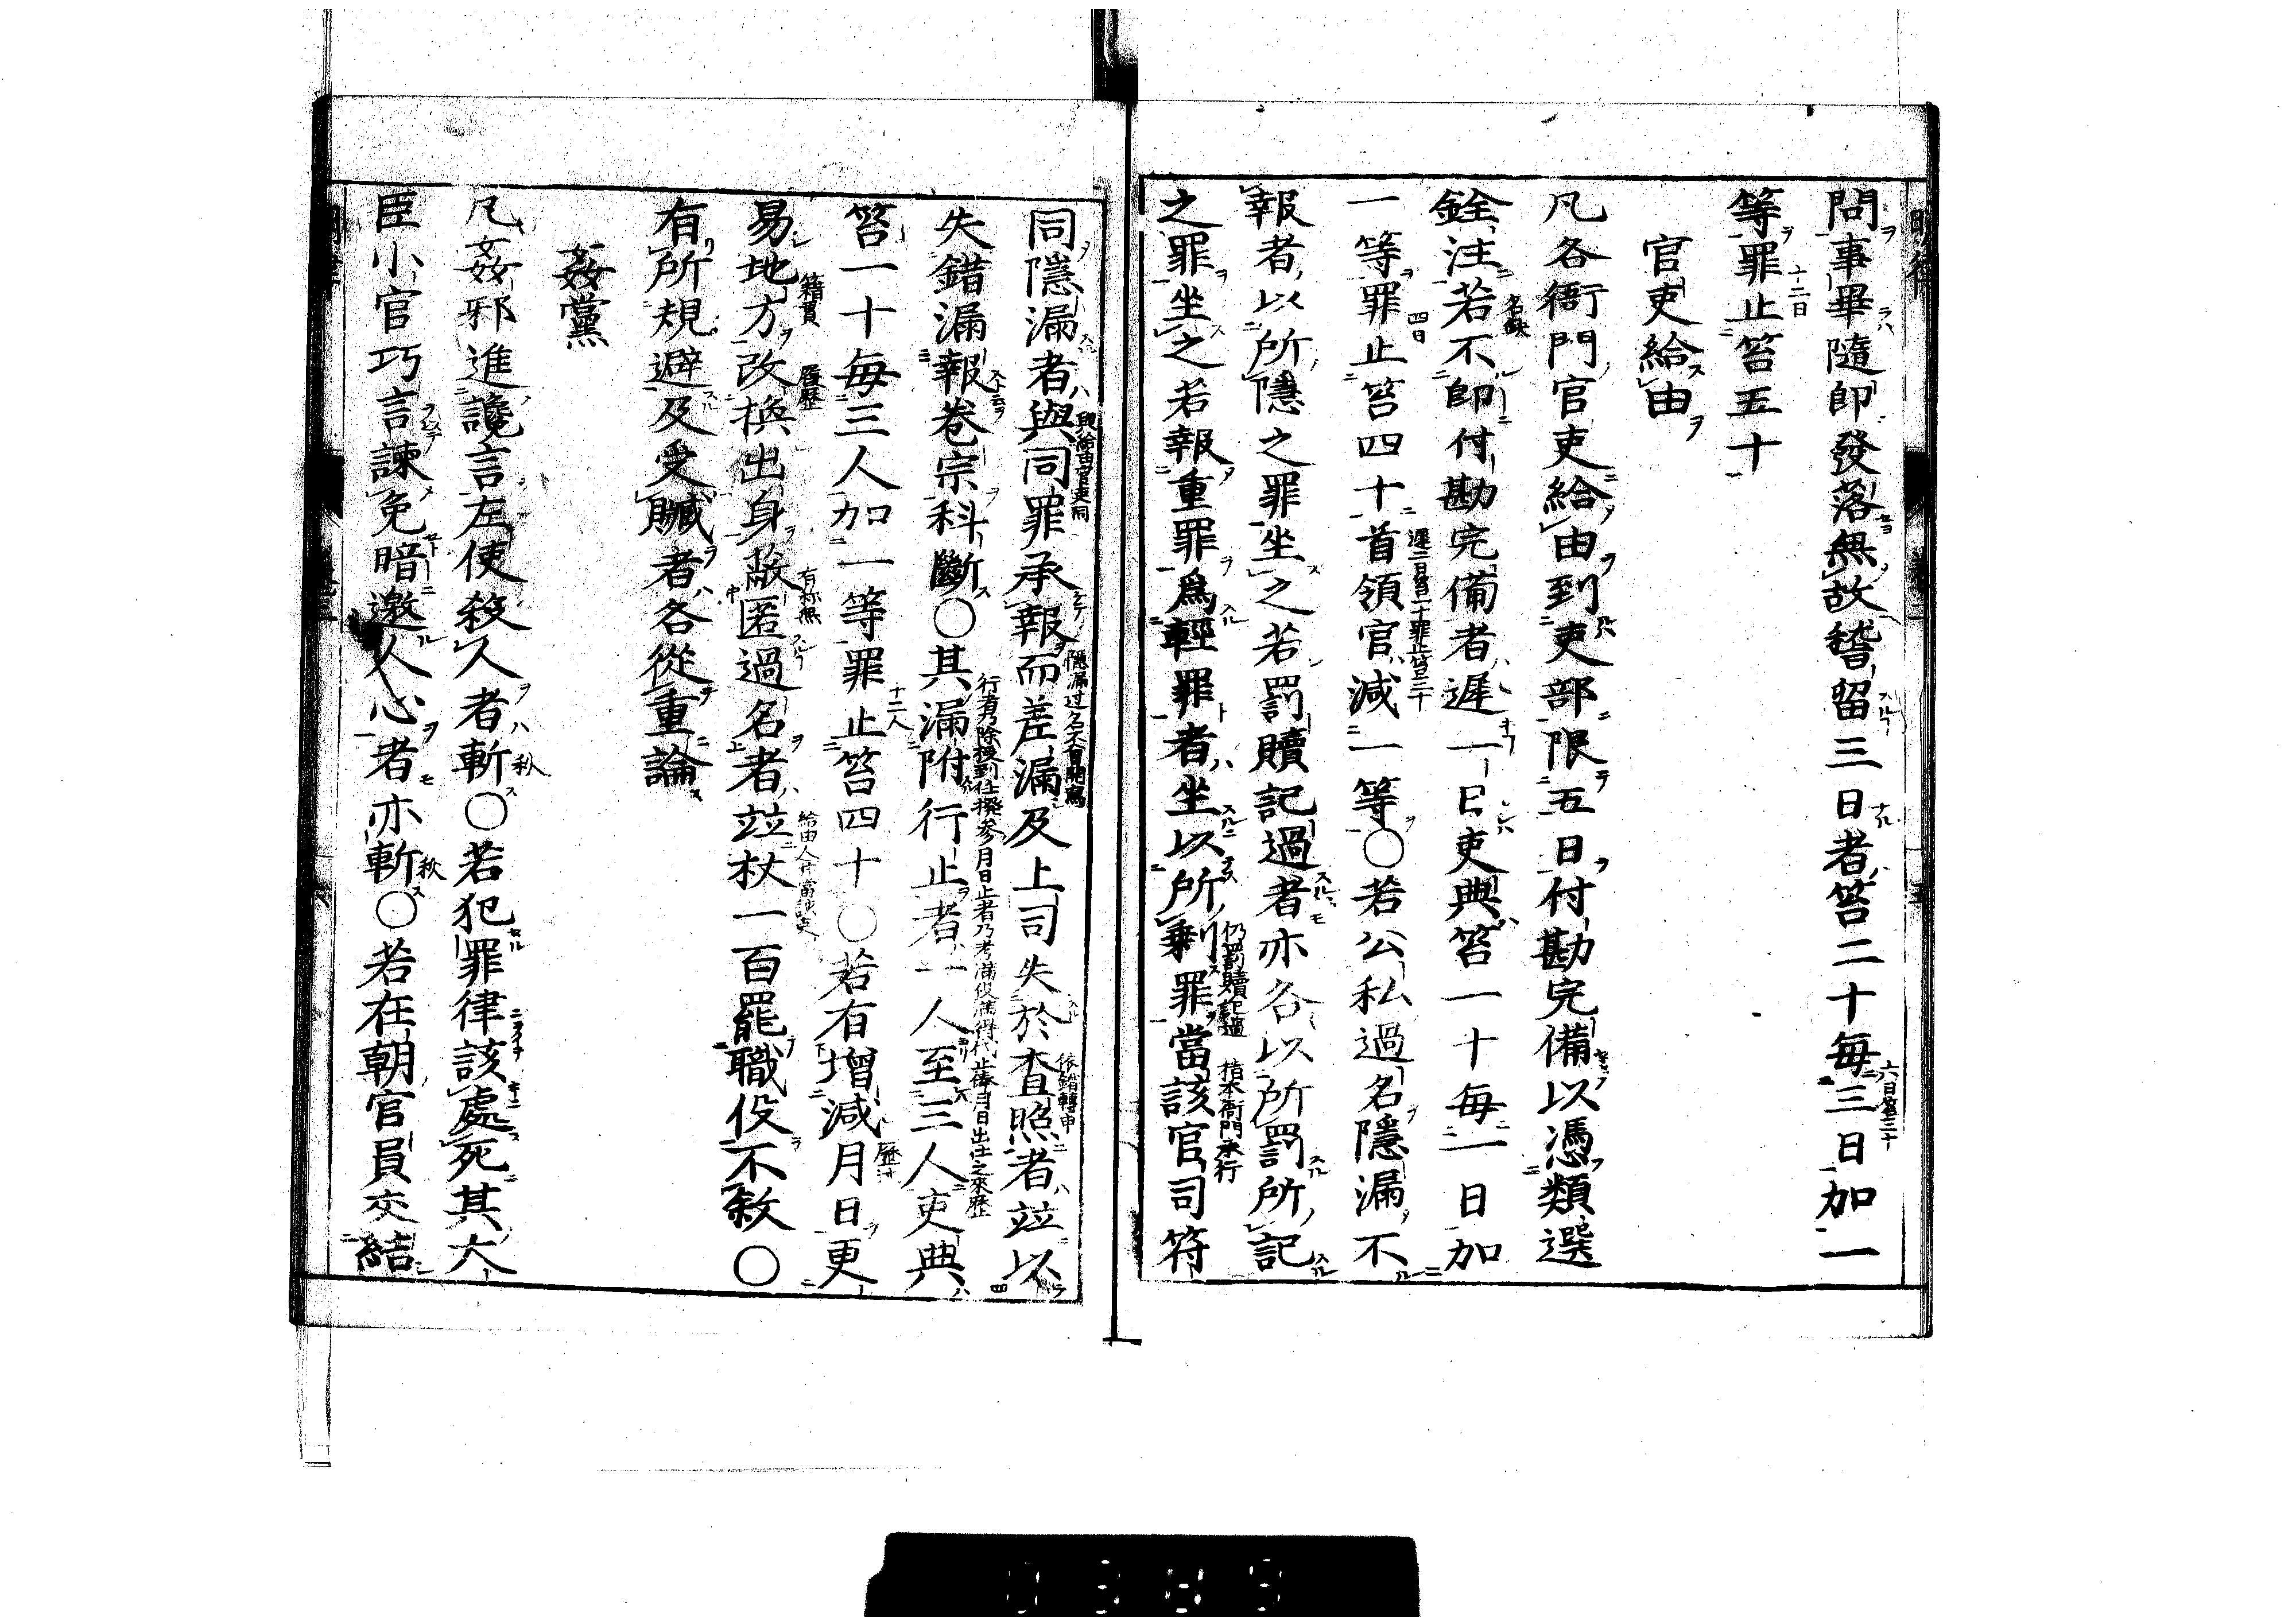 問事畢隨即發落無故稽留三日者笞二十毎三日加一
等罪止笞五十
官吏給由
凡各衙門官吏給由到吏部限五日付勘完備以憑類選
銓注若不即付勘完備者遲一日吏典笞一十毎一日加
一等罪止笞四十首領官減一等〇若公私過名隱漏不
報者以所隱之罪坐之若罰贖記過者亦各以所罰所記
之罪坐之若報重罪爲輕罪者坐以所剩罪當該官司符
同隱漏者與同罪承報而差漏及上司失於査照者竝以
失錯漏報卷宗科斷〇其漏附行止者一人至三人吏典
笞一十毎三人加一等罪止笞四十〇若有增減月日更
易地方改換出身蔽匿過名者竝杖一百罷職役不敘〇
有所規避及受贓者各從重論
姦黨
凡姦邪進讒言左使殺人者斬〇若犯罪律該處死其大
臣小官巧言諫免暗邀人心者亦斬〇若在朝官員交結